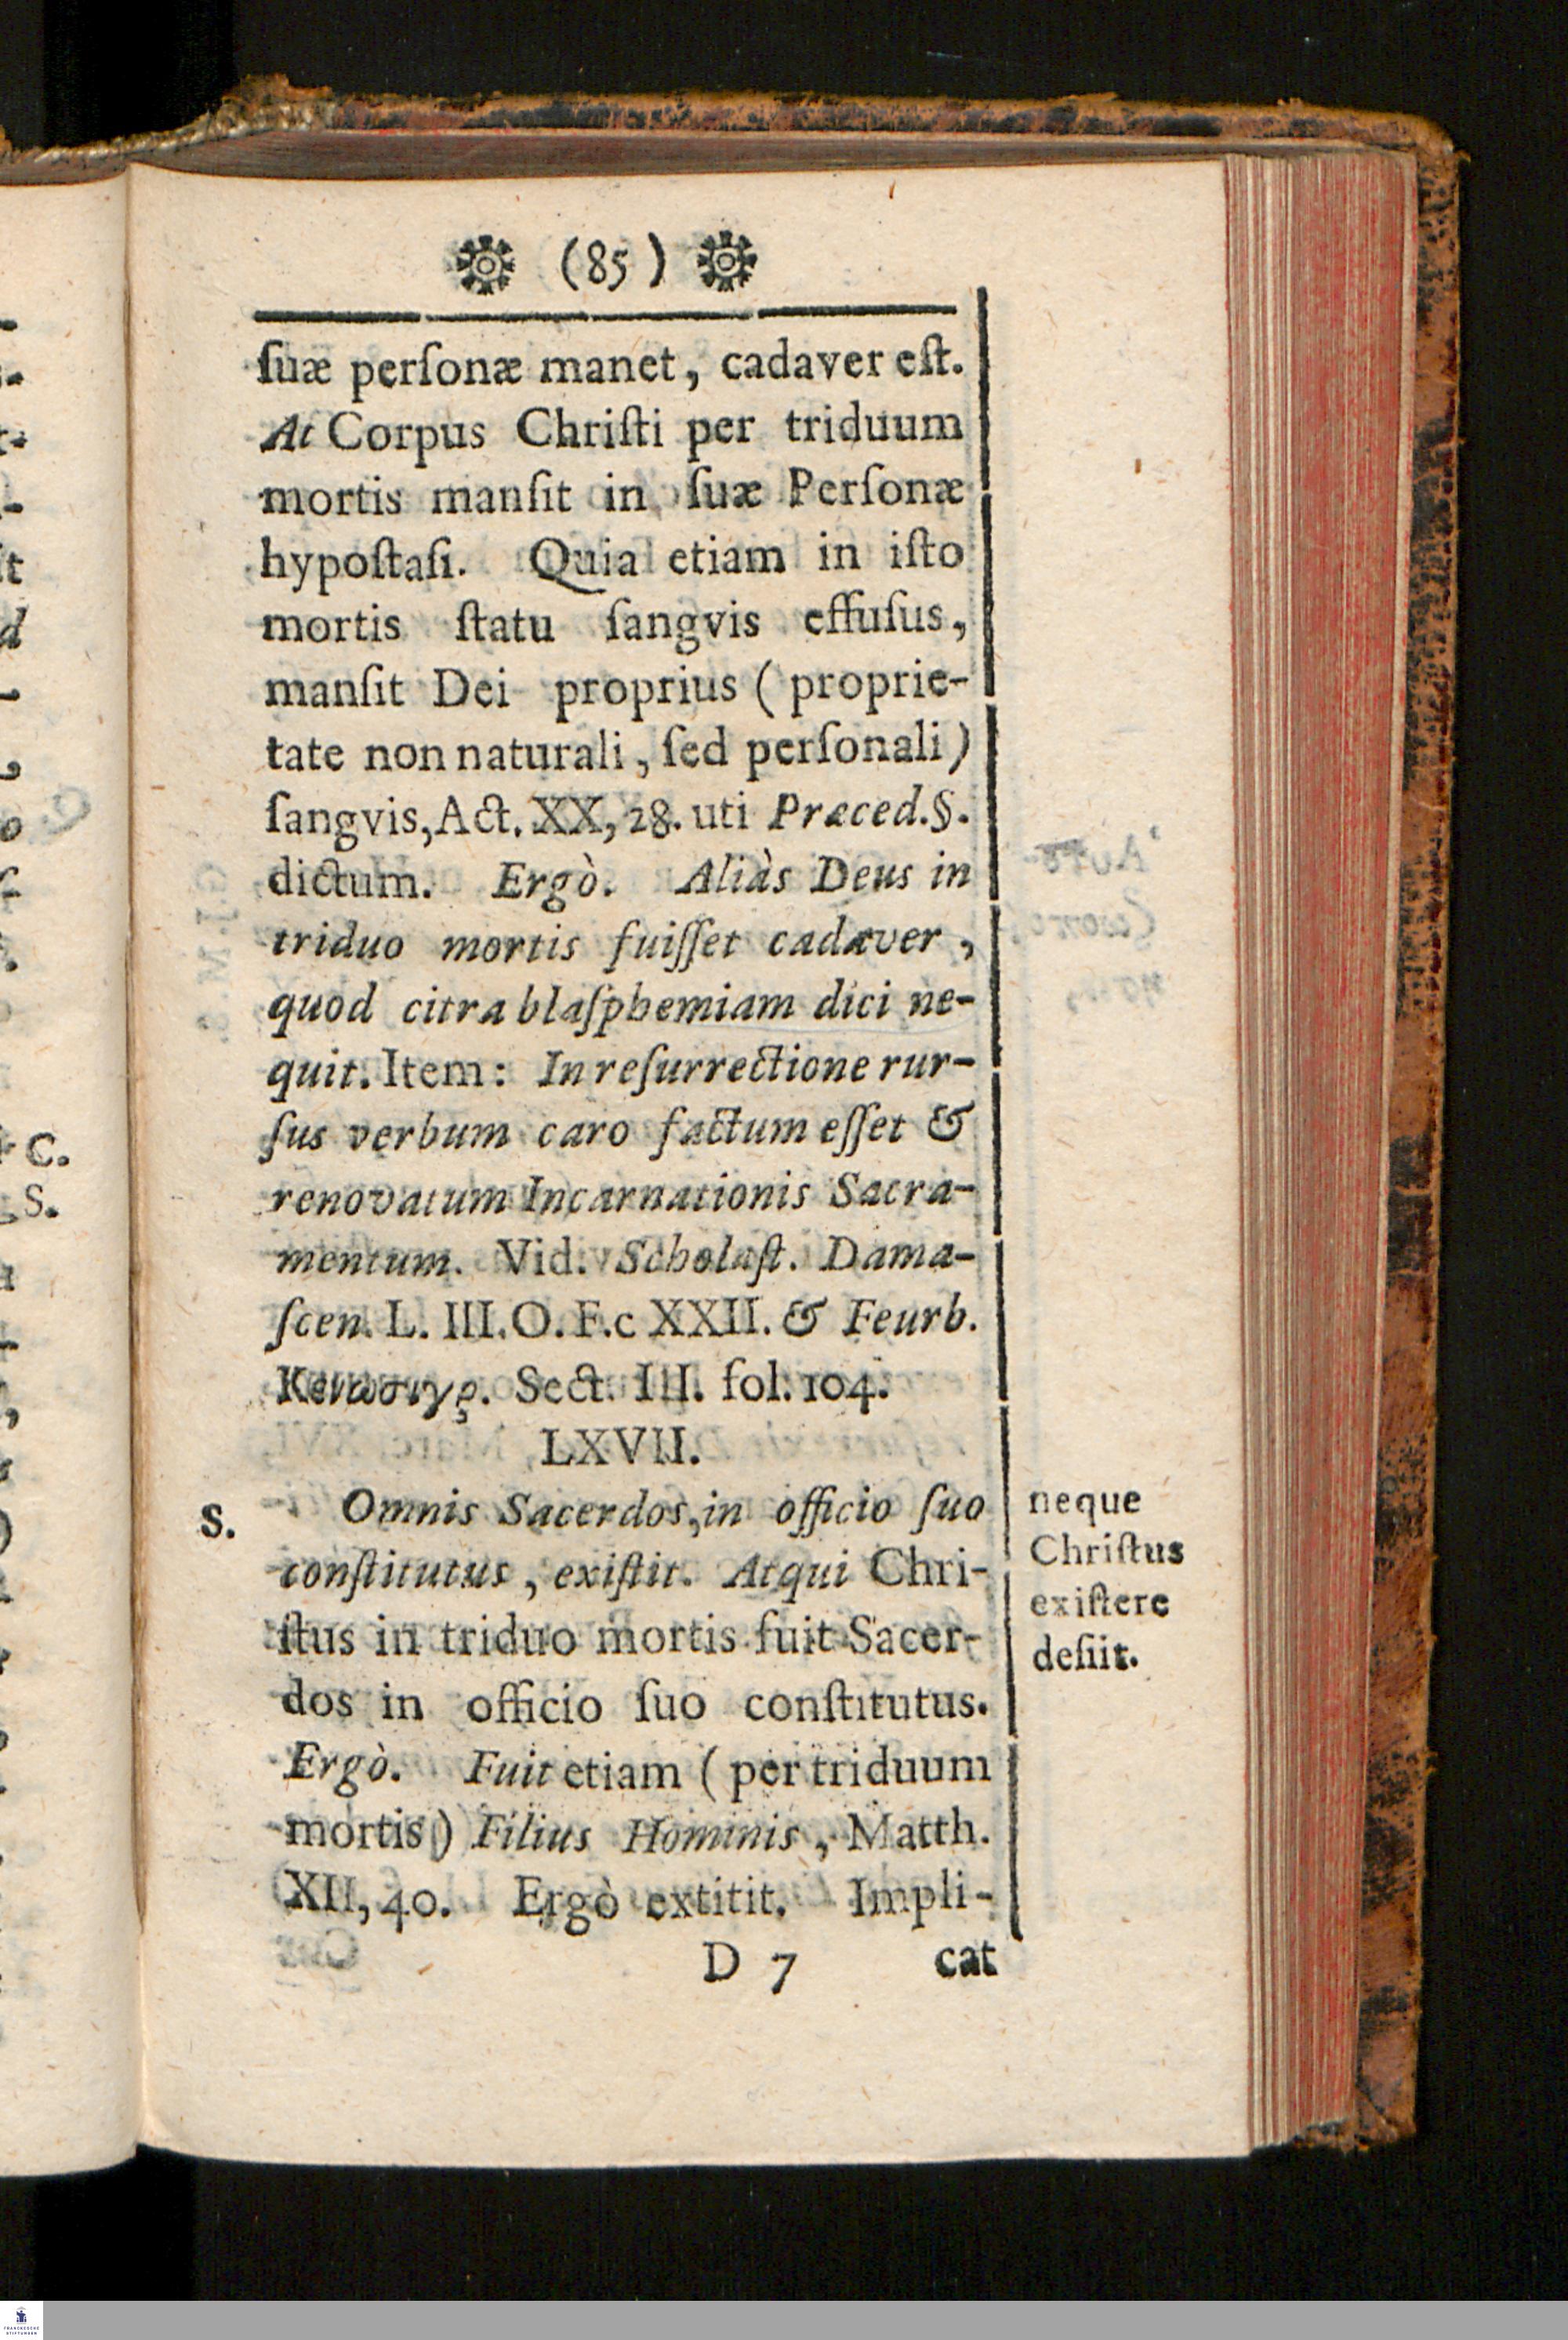 (85)
ſuæ perſonæ manet, cadaver eſt.
At Corpus Chriſti per triduum
mortis manſit in ſuæ Perſonæ
hypoſtaſi. Quia etiam in iſto
mortis ſtatu ſangvis effuſus,
manſit Dei proprius (proprie-
tate non naturali, ſed perſonali)
ſangvis, Act. XX, 28. uti Præced. §.
dictum. Ergò. Aliàs Deus in
triduo mortis fuiſſet cadaver,
quod citra blaſphemiam dici ne-
quit. Item: In reſurrectione rur-
ſus verbum caro factum eſſet &
renovatum Incarnationis Sacra-
mentum. Vid. Scholaſt. Dama-
ſcen. L. III. O. F. c XXII. & Feurb.
Sect. III. fol. 104.
LXVII.
S.
Omnis Sacerdos, in officio ſuo
conſtitutus, exiſtit. Atqui Chri-
ſtus in triduo mortis fuit Sacer-
dos in officio ſuo conſtitutus.
Ergò. Fuit etiam (per triduum
mortis) Filius Hominis, Matth.
XII, 40. Ergò extitit. Impli-
neque
Chriſtus
exiſtere
deſiit.
D 7 cat
C.
S.
FRANCKESCHE
STIFTUNGEN